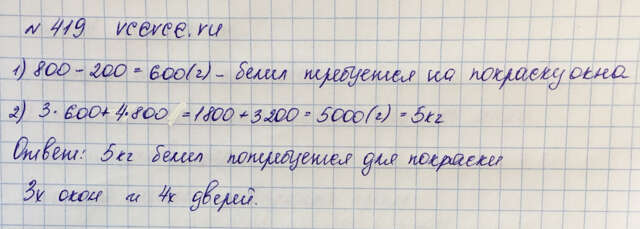 № 419 vcevce.ru
1) 800 - 200 = 600 (г) - белил требуется на покраску окна
2) 3 · 600 + 4 · 800 = 1800 + 3200 = 5000 (г) = 5кг
Ответ: 5кг белил потребуется для покраски
3х окон и 4х дверей.